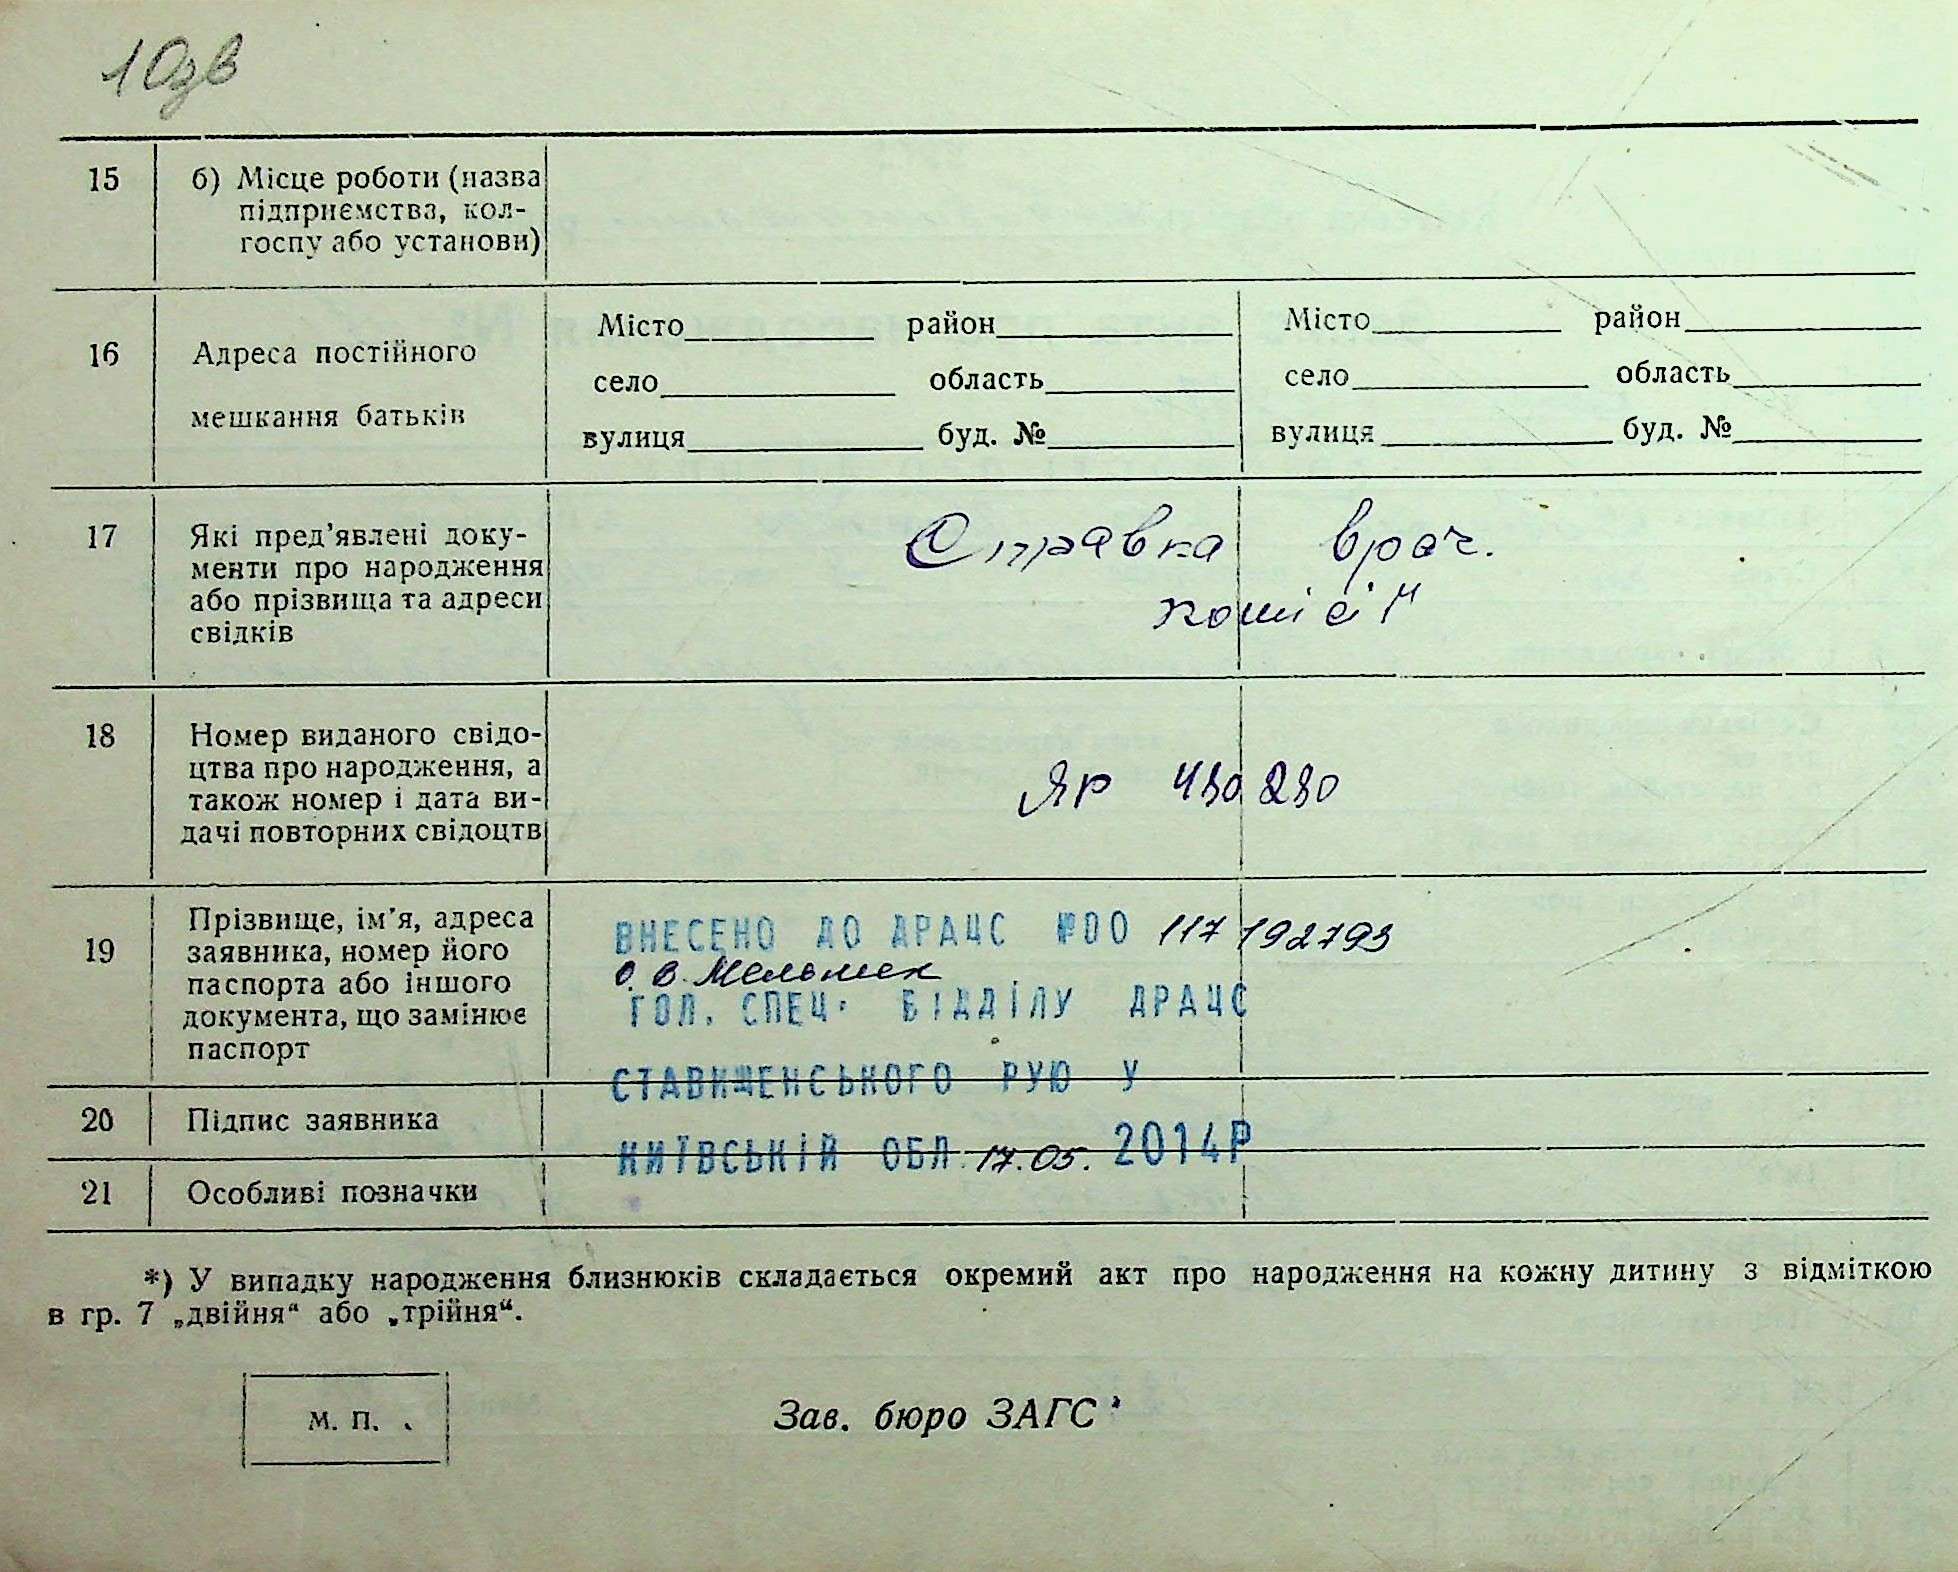 10зв
15 б) Місце роботи (назва
підприємства, кол-
госпу або установи)
16 Адреса постійного
мешкання батьків
Місто район
село область
вулиця буд. №
Місто район
село область
вулиця буд. №
17 Які пред'явлені доку-
менти про народження
або прізвища та адреси
свідків
Справка врач.
комісії
18 Номер виданого свідо-
цтва про народження, а
також номер і дата ви-
дачі повторних свідоцтв
ЯР 480280
19 Прізвище, ім'я, адреса
заявника, номер його
паспорта або іншого
документа, що замінює
паспорт
ВНЕСЕНО ДО ДРАЦС №00 117192793
О.В. Мельник
ГОЛ. СПЕЦ. ВІДДІЛУ ДРАЦС
СТАВИЩЕНСЬКОГО РУЮ У
КИЇВСЬКІЙ ОБЛ. 17.05. 2014Р
20 Підпис заявника
21 Особливі позначки
*) У випадку народження близнюків складається окремий акт про народження на кожну дитину з відміткою
в гр. 7 „двійня“ або „трійня“.
М. П.
Зав. бюро ЗАГС